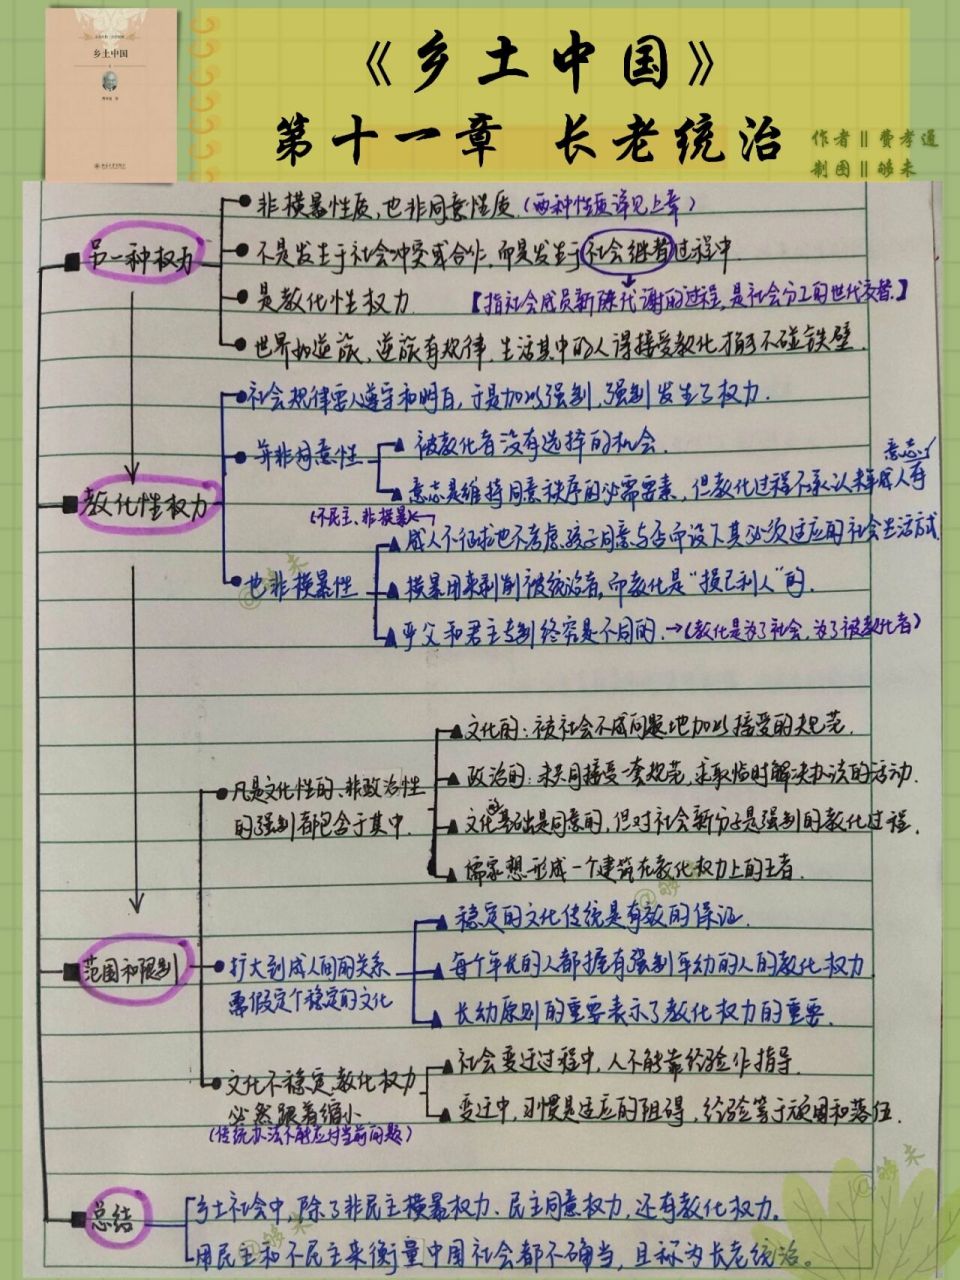 《乡土中国》
第十一章 长老统治
作者 || 费孝通
制图 || 够未
乡土中国
另一种权力
非横暴性质,也非同意性质.(两种性质详见上章)
不是发生于社会冲突或合作,而是发生于社会继替过程中.
是教化性权力.
【指社会成员新陈代谢的过程,是社会分工的世代交替.】
世界如逆旅,逆旅有规律,生活其中的人得接受教化才可不碰铁壁.
教化性权力
社会规律要人遵守和明白,于是加以强制,强制发生了权力.
并非同意性
被教化者没有选择的机会.
意志是维持同意秩序的必需要素,但教化过程不承认未成年人有
意志
(不民主、非横暴)
也非横暴性
成人不征求也不考虑孩子同意与否而设下其必须适应的社会生活方式.
横暴用来剥削被统治者,而教化是“损己利人”的.
严父和君主专制终究是不同的.→(教化是为了社会,为了被教化者)
范围和限制
凡是文化性的、非政治性
的强制都包含于其中.
文化的:被社会不成问题地加以接受的规范.
政治的:未共同接受一套规范,求取临时解决办法的活动.
文化的基础是同意的,但对社会新分子是强制的教化过程.
儒家想形成一个建筑在教化权力上的王者.
扩大到成人间的关系
需假定个稳定的文化
稳定的文化传统是有效的保证.
每个年长的人都握有强制年幼的人的教化权力
长幼原则的重要表示了教化权力的重要.
文化不稳定,教化权力
必然跟着缩小
(传统办法不能应付当前问题)
社会变迁过程中,人不能靠经验作指导.
变迁中,习惯是适应的阻碍,经验等于顽固和落伍.
总结
乡土社会中,除了非民主横暴权力、民主同意权力,还有教化权力。
用民主和不民主来衡量中国社会都不确当,且称为长老统治。
@够未
@够未
@够未
@够未